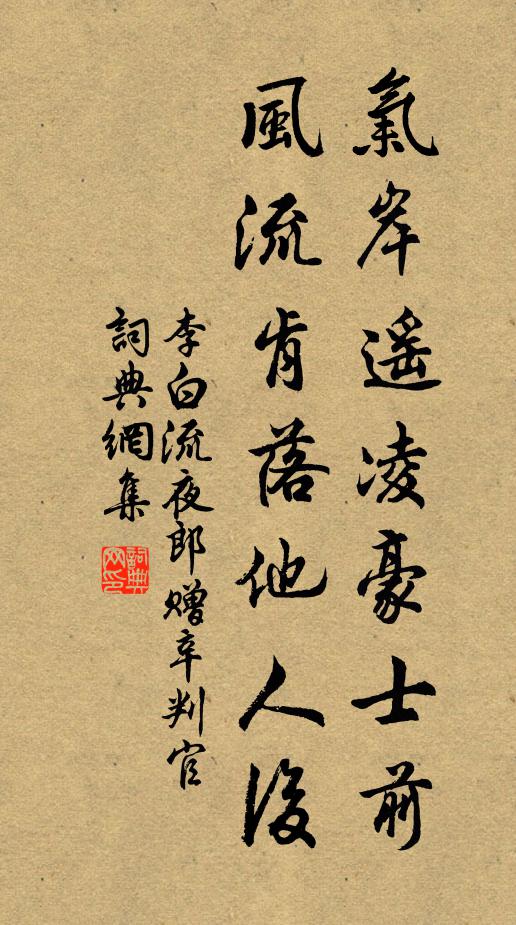 氣岸遥凌豪士前
風流肯落他人後
李白流夜郎赠辛判官
詞典網集
詞典网印